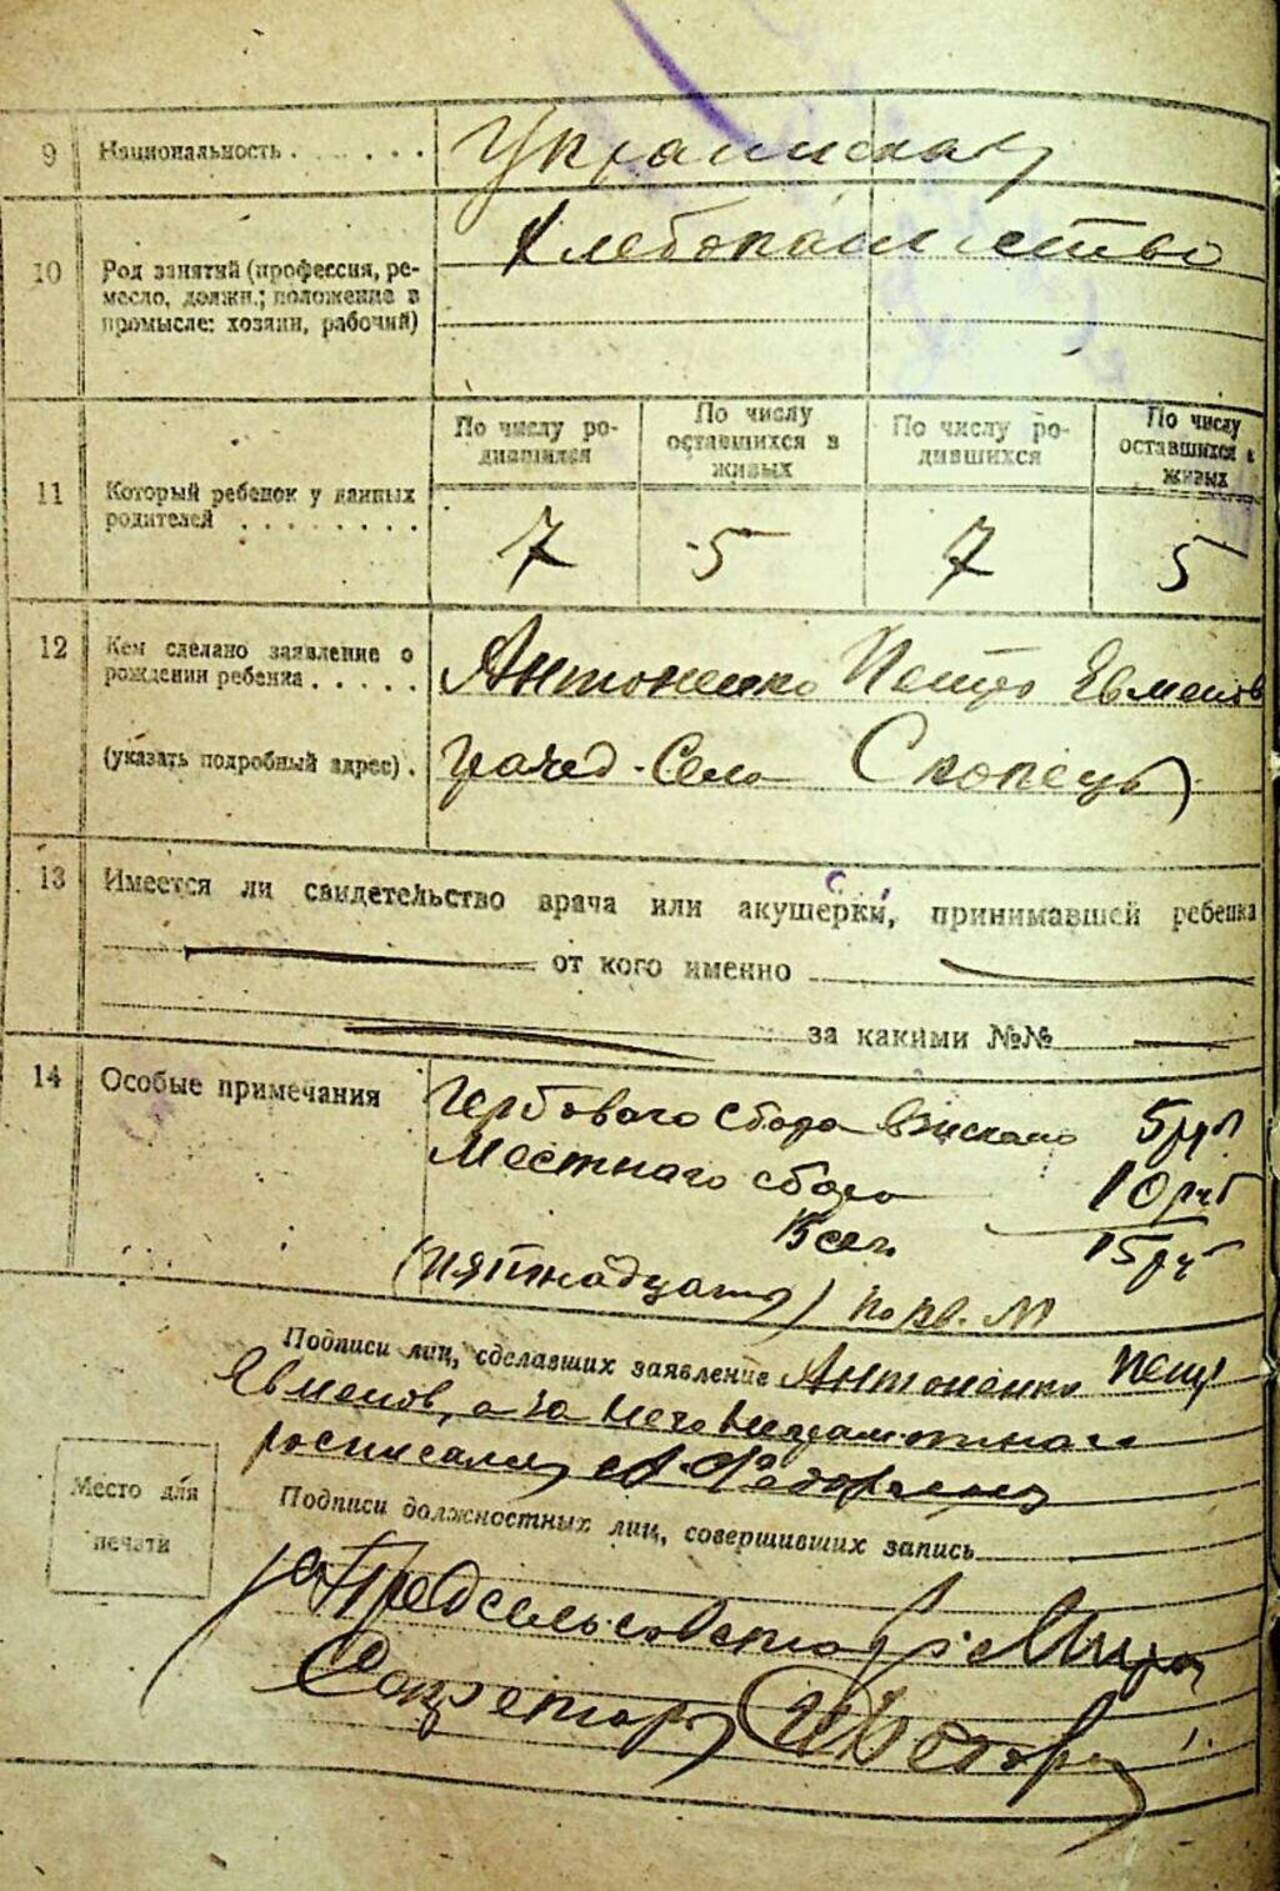 9 Национальность . . . . . . . Украинская
10 Род занятий (профессия, ре-
месло, должн.; положение в
промысле: хозяин, рабочий)
Хлебопашество
По числу ро-
дившихся
По числу
оставшихся в
живых
По числу ро-
дившихся
По числу
оставшихся в
живых
11 Который ребенок у данных
родителей . . . . . . . .
7 5 7 5
12 Кем сделано заявление о
рождении ребенка . . . . .
Антоненко Петро Евменов
(указать подробный адрес) .
гражд. Села Скопець
13 Имеется ли свидетельство врача или акушерки, принимавшей ребенка
от кого именно
за какими №№
14 Особые примечания
Гербового сбора взискано 5 руб
Местнаго сбора 10 руб
Всего 15 руб
(пятнадцать) по кв. №
Подписи лиц, сделавших заявление Антоненко Петр
Евменов, а за него неграмотнаго
росписался
Место для
печати
Подписи должностных лиц, совершивших запись
Предсельсовета
Секретарь